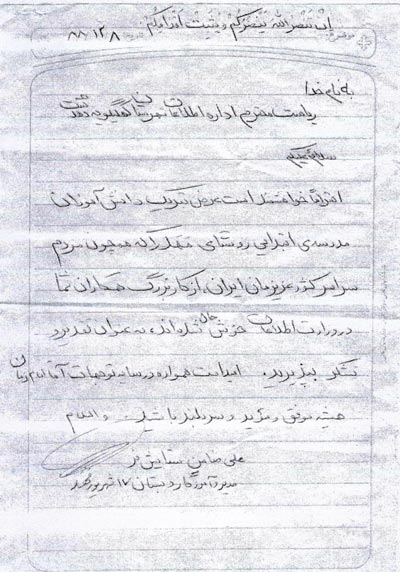 ان تنصر الله ینصرکم و یثبت اقدامکم
۸۸/۱۲/۸
به نام خدا
ریاست محترم اداره اطلاعات شهرستان کهگیلویه دهدشت
سلام علیکم
احتراماً خواهشمند است عرض تبریک دانش آموزان
مدرسه ی ابتدایی روستای را که همچون مردم
سراسر کشور عزیزمان ایران، از کار بزرگ همکاران شما
در وزارت اطلاعات خوش حال شده اند، به عنوان تقدیر و
تشکر بپذیرید. امید است همواره در سایه توجهات آقا امام زمان
همیشه موفق و مؤید و سربلند باشید. والسلام
علی ضامن ستایش فر
مدیر و آموزگار دبستان ۱۷ شهریور